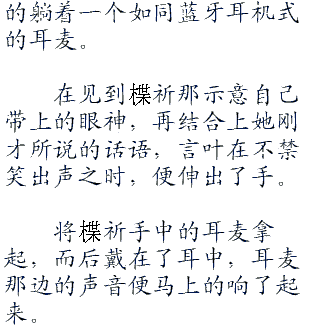 的躺着一个如同蓝牙耳机式
的耳麦。
在见到楪祈那示意自己
带上的眼神，再结合上她刚
才所说的话语，言叶在不禁
笑出声之时，便伸出了手。
将楪祈手中的耳麦拿
起，而后戴在了耳中，耳麦
那边的声音便马上的响了起
来。